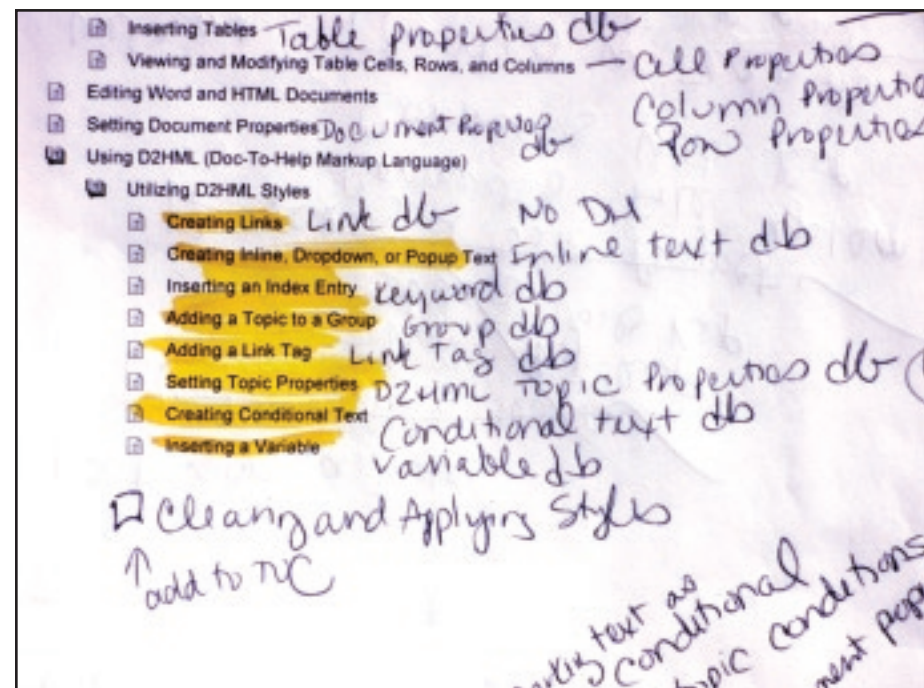 Inserting Tables - Table properties db
Viewing and Modifying Table Cells, Rows, and Columns - Cell Properties
Column Propertie
Row Properties
Editing Word and HTML Documents
Setting Document Properties Document
db
Using D2HML (Doc-To-Help Markup Language)
Utilizing D2HML Styles
Creating Links Link db No
Creating Inline, Dropdown, or Popup Text Inline text db
Inserting an Index Entry Keyword db
Adding a Topic to a Group Group db
Adding a Link Tag Link Tag db
Setting Topic Properties D2HML Topic Properties db
Creating Conditional Text Conditional text db
Inserting a Variable Variable db
and Applying Styles
add to
text as
conditional
conditions